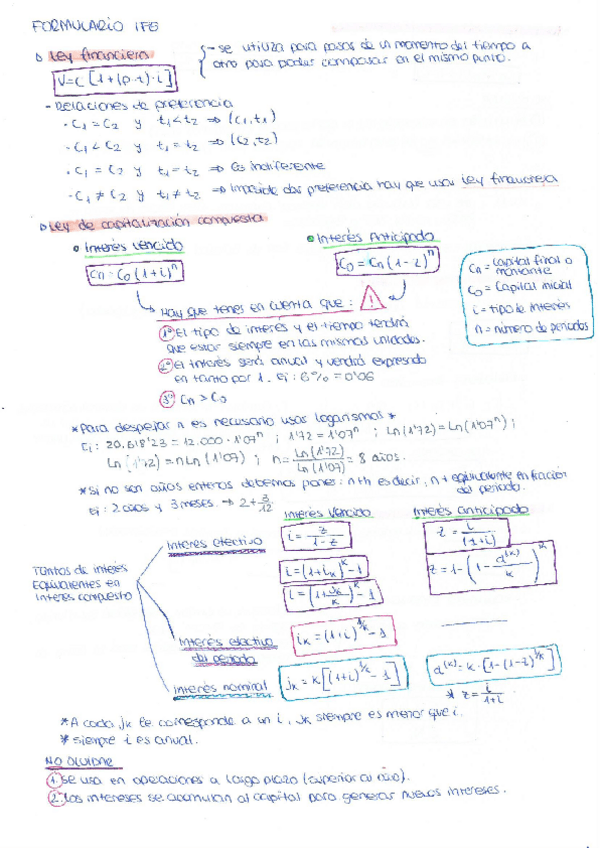 FORMULARIO IFE
Ley financiera
- se utiliza para pasar de un momento del tiempo a
otro para poder comparar en el mismo punto.
V=C[1+(p-t)·i]
- Relaciones de preferencia
- C₁ = C₂ y t₁ < t₂ ⇒ (C₁,t₁)
- C₁ < C₂ y t₁ = t₂ ⇒ (C₂,t₂)
- C₁ = C₂ y t₁ = t₂ ⇒ Es indiferente
- C₁ ≠ C₂ y t₁ ≠ t₂ ⇒ imposible dar preferencia hay que usar ley financiera
Ley de capitalización compuesta
Interés vencido
Interés Anticipado
Cn = C₀(1+i)ⁿ
C₀ = Cn(1-z)ⁿ
Cn = capital final o
montante
C₀ = Capital inicial
i = tipo de interés
n = número de periodos
Hay que tener en cuenta que: !
1º El tipo de interés y el tiempo tendrá
que estar siempre en las mismas unidades.
2º el interés será anual y vendrá expresado
en tanto por 1. ej: 6% = 0'06
3º Cn > C₀
*Para despejar n es necesario usar logaritmos*
ej: 20.618'23 = 12.000 · 1'07ⁿ ; 1'72 = 1'07ⁿ ; Ln(1'72) = Ln(1'07ⁿ) ;
Ln(1'72) = n Ln(1'07) ; n = Ln(1'72)/Ln(1'07) = 8 años.
*Si no son años enteros debemos poner: n+h es decir, n + equivalente en fracción
del periodo.
ej: 2 años y 3 meses → 2+3/12
Interés vencido
Interés anticipado
Tantos de interés
Equivalentes en
interés compuesto
Interés efectivo
i = z/(1-z)
z = i/(1+i)
i = (1+iₖ)ᵏ - 1
i = (1+jₖ/k)ᵏ - 1
z = 1-(1-d⁽ᵏ⁾/k)ᵏ
Interés efectivo
del periodo
iₖ = (1+i)^(1/k) - 1
Interés nominal
jₖ = k[(1+i)^(1/k) - 1]
d⁽ᵏ⁾ = k·[1-(1-z)^(1/k)]
* z = i/(1+i)
*A cada jₖ le corresponde a un i, jₖ siempre es menor que i.
* siempre i es anual.
NO OLVIDAR
1. Se usa en operaciones a largo plazo (superior al año).
2. Los intereses se acumulan al capital para generar nuevos intereses.